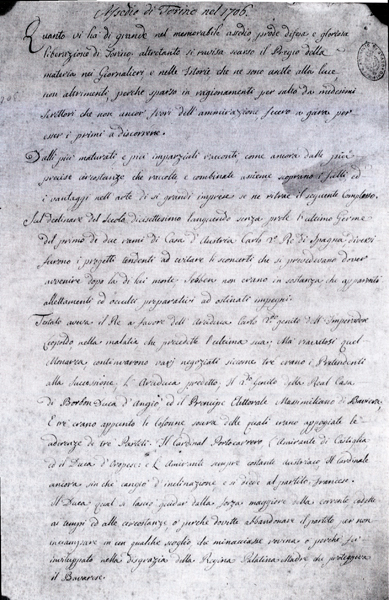 Assedio di Torino nel 1706.
Quanto vi ha di grande nel memorabile assedio, prode difesa e gloriosa
liberazione di Torino altretanto si ravisa scarso il Pregio della
materia nei Giornalieri e nelle Istorie che ne sono uscite alla luce
non altrimenti, perchè sparso in ragionamenti per salto da medesimi
Scrittori che non ancor fuori dell'ammirazione fecero a gara per
esser i primi a discorrere.
Dalli più maturati e più imparziali racconti come ancora dalle più
precise circostanze che raccolte e combinate assieme scoprano i fatti ed
i vantaggi nell'arte di sì grandi imprese se ne ritrae il seguente Complesso.
Sul declinare del Secolo diciasettesimo languendo senza prole l'ultimo Germe
del primo di due rami di Casa d'Austria Carlo 2º Re di Spagna diversi
furono i progetti tendenti ad evitare li sconcerti che si prevedevano dover
avvenire dopo la di lui morte. Sebben non erano in sostanza che apparenti
allettamenti ed occulti preparativi ad ostinati impegni.
Testato aveva il Re a favore dell'Arciduca Carlo genito dell'Imperadore
Leopoldo nella malatia che precedette l'ultima sua; Ma riavutosi quel
Monarca continuarono varj negoziati siccome tre erano i Pretendenti
alla Successione, L'Arciduca predetto, il genito della Real Casa
di Borbon Duca d'Angiò ed il Principe Elettorale Massimiliano di Baviera
E tre erano appunto le colonne sovra delle quali erano appoggiate le
aderenze de tre Partiti. Il Cardinal Portocarrero l'Amirante di Castiglia
ed il Duca d'Oropesa: L'Amirante sempre costante austriaco Il Cardinale
ancora sin che cangiò d'inclinazione e si diede al partito francese.
Il Duca qual si lasciò guidar dalla forza maggiore della corrente
ai tempi ed alle circostanze o perchè dovette abbandonare il partito per non
inciampare in un qualche scoglio che minacciasse rovina o perchè fu
inviluppato nella disgrazia della Regina Palatina Madre che proteggeva
il Bavarese.